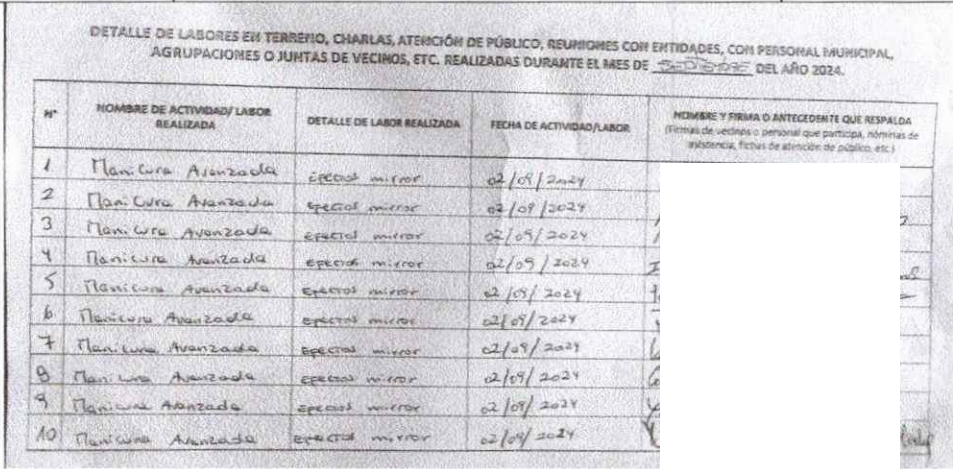 DETALLE DE LABORES EN TERRENO, CHARLAS, ATENCIÓN DE PÚBLICO, REUNIONES CON ENTIDADES, CON PERSONAL MUNICIPAL,
AGRUPACIONES O JUNTAS DE VECINOS, ETC. REALIZADAS DURANTE EL MES DE DEL AÑO 2024.
N° NOMBRE DE ACTIVIDAD/ LABOR REALIZADA DETALLE DE LABOR REALIZADA FECHA DE ACTIVIDAD/LABOR NOMBRE Y FIRMA O ANTECEDENTE QUE RESPALDA
(Firmas de vecinos o personal que participa, nóminas de
asistencia, fichas de atención de público, etc.)
1 Manicura Avanzada epectos mirror 02/09/2024
2 Manicura Avanzada epectos mirror 02/09/2024
3 Manicura Avanzada epectos mirror 02/09/2024
4 Manicura Avanzada epectos mirror 02/09/2024
5 Manicura Avanzada epectos mirror 02/09/2024
6 Manicura Avanzada epectos mirror 02/09/2024
7 Manicura Avanzada epectos mirror 02/09/2024
8 Manicura Avanzada epectos mirror 02/09/2024
9 Manicura Avanzada epectos mirror 02/09/2024
10 Manicura Avanzada epectos mirror 02/09/2024